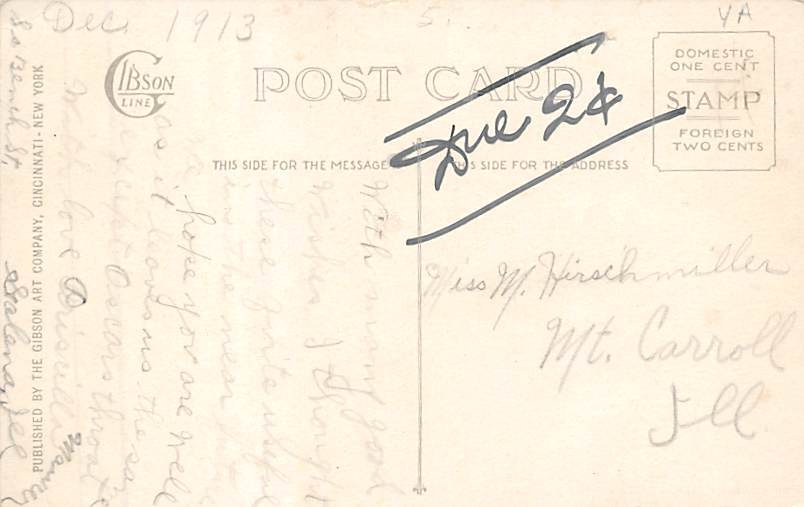 Dec. 1913
5.
YA
GIBSON
LINE
POST CARD
DOMESTIC
ONE CENT
STAMP
FOREIGN
TWO CENTS
Due 2¢
THIS SIDE FOR THE MESSAGE
THIS SIDE FOR THE ADDRESS
Miss M. Hirschmiller
Mt. Carroll
Ill
With many good
wishes I thought
these quite useful
in the near
hope you are well
as it leaves us the
except Oscars throat
With love Priscilla
Galena, Ill
PUBLISHED BY THE GIBSON ART COMPANY, CINCINNATI - NEW YORK